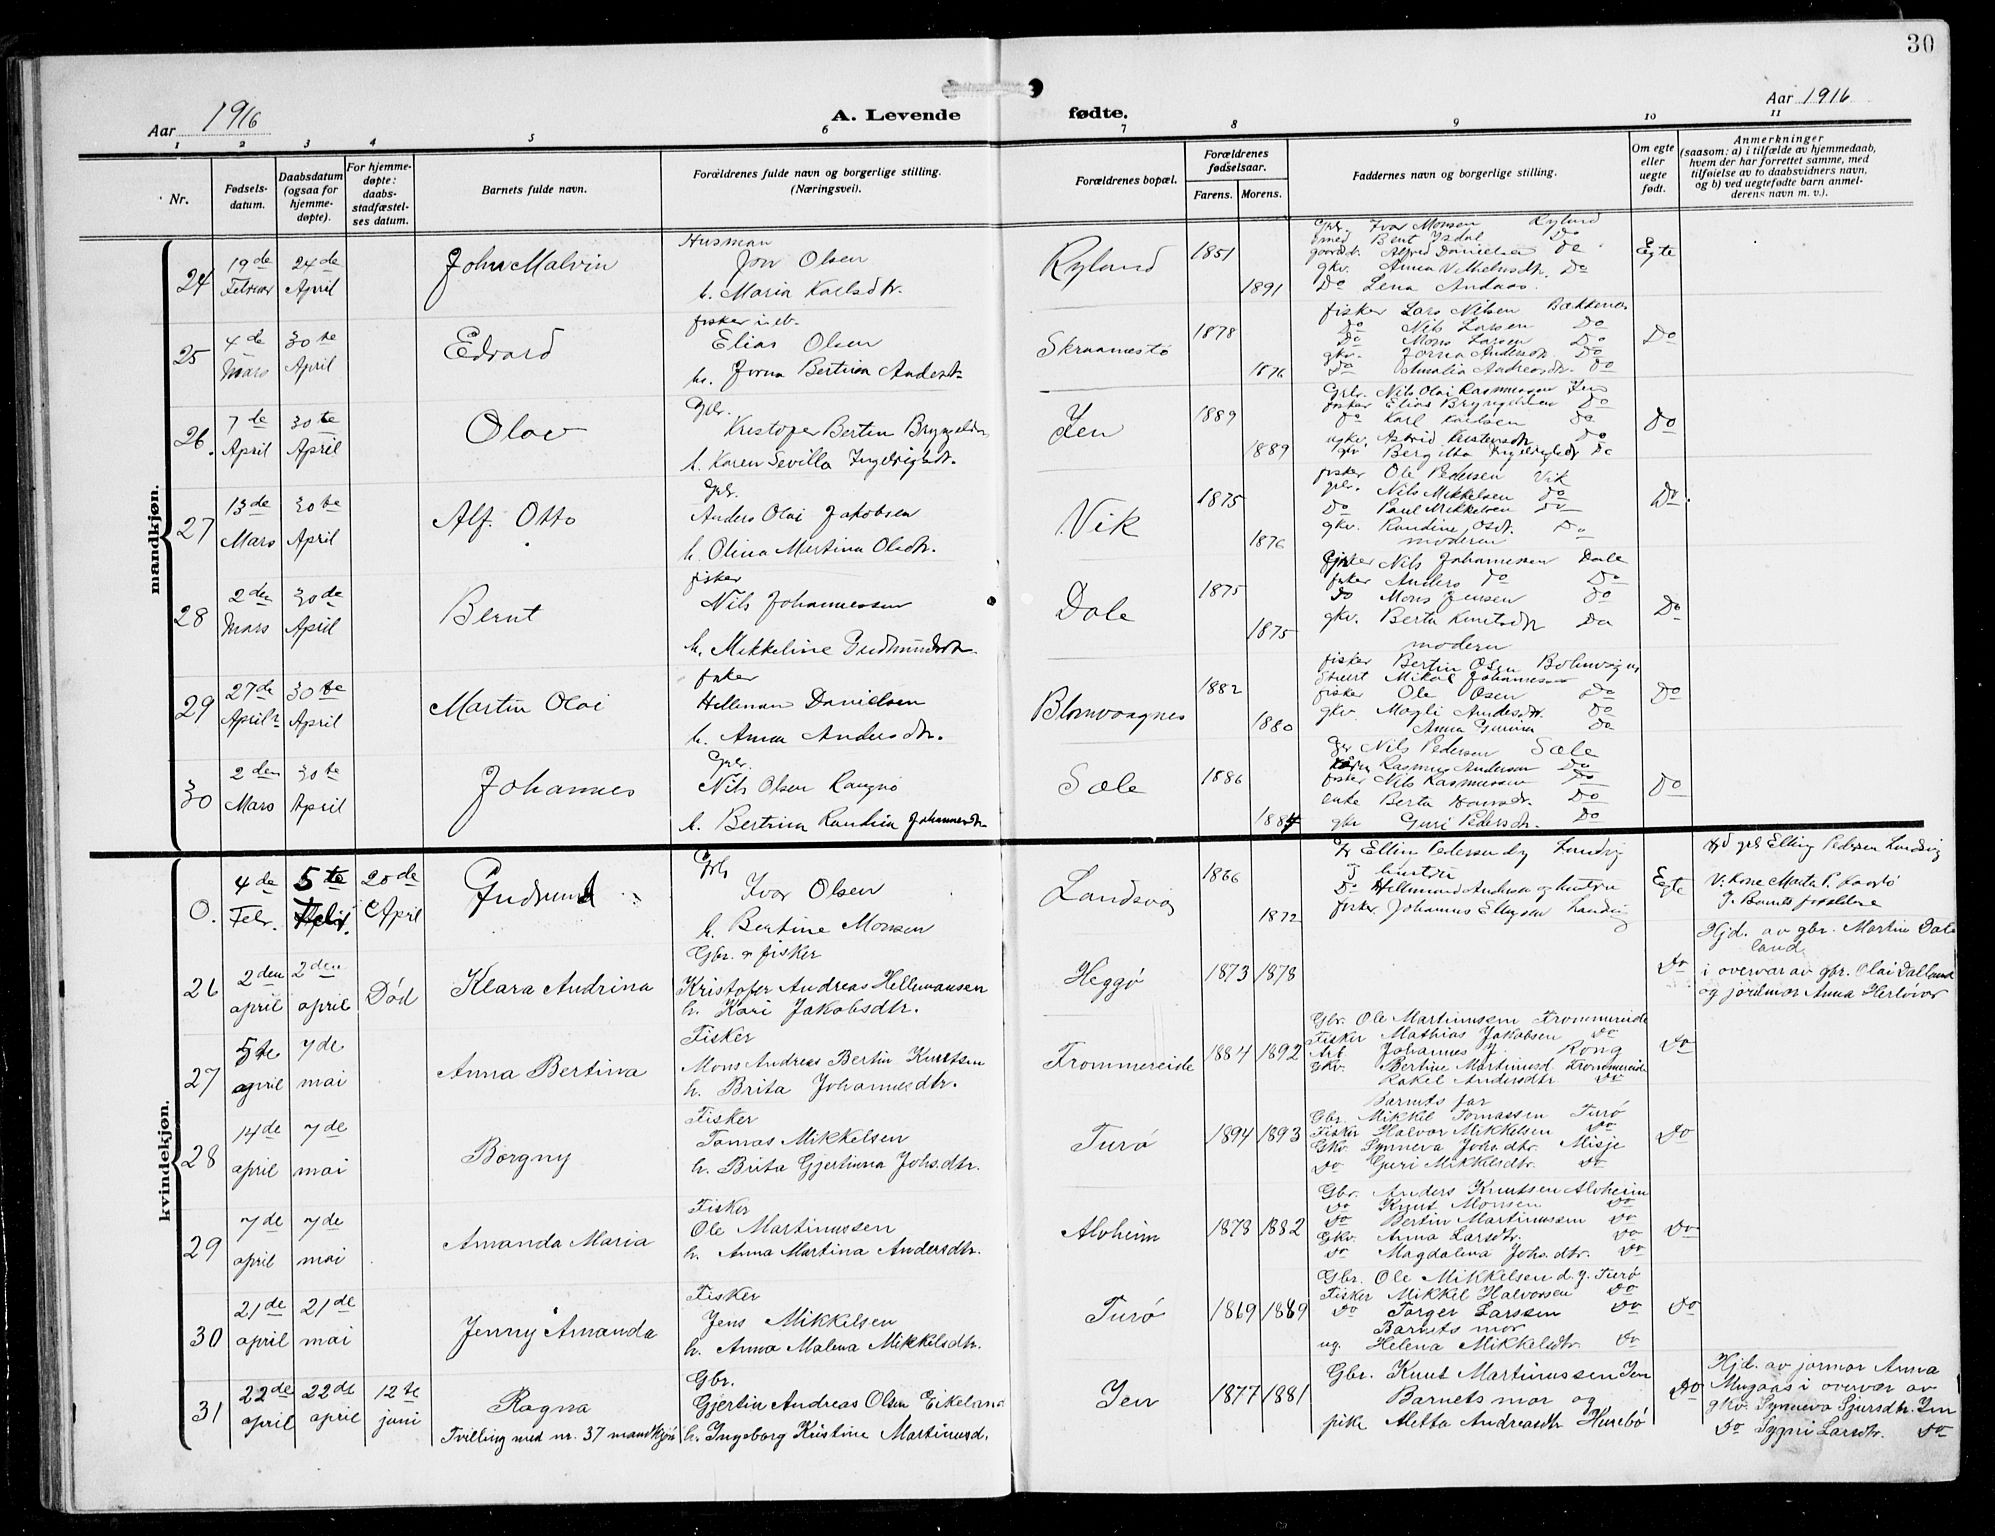 30
Aar 1916
A. Levende fødte.
Aar 1916
1 2 3 4 5 6 7 8 9 10 11
Nr.
Fødsels-
datum.
Daabsdatum
(ogsaa for
hjemme-
døpte).
For hjemme-
døpte:
daabs-
stadfæstel-
ses datum.
Barnets fulde navn.
Forældrenes fulde navn og borgerlige stilling.
(Næringsvei).
Forældrenes bopæl.
Forældrenes
fødselsaar.
Farens. Morens.
Faddernes navn og borgerlige stilling.
Om egte
eller
uegte
født.
Anmerkninger
(saasom: a) i tilfælde av hjemmedaab,
hvem der har forrettet samme, med
tilføielse av to daabsvidners navn,
og b) ved uegtefødte barn anmel-
derens navn m. v.).
mandkjøn.
24
19de
Februar
24de
April
John Malvin
Husman
Jon Olsen
h. Maria Karlsdtr.
Ryland
1851
1891
Gbr. Ivar Monsen Ryland
Bent Isdal Do
Alfred Danielsen Do
gkv. Anna Vilhelmsdtr. Do
Do Lena Andaas
Egte
25
4de
Mars
30te
April
Edvard
fisker
Elias Olsen
h. Jorna Bertina Andersdtr
Skraamestø
1878
1876
fisker Lars Nilsen Bakkenes
Do Nils Larsen Do
Do Mons Larsen Do
gkv. Jorna Andersdtr. Do
Do Amalia Andreasdtr. Do
Do
26.
7de
April
30te
April
Olav
Gbr.
Kristofer Bertin Bryngelsen
h. Karen Sevilla Ingebrigtsdtr.
Jen
1889
1889
Gbr. Nils Olai Rasmussen Jen
fisker Elias Bryngelsen Do
Do Karl Karlsen Do
ugkv. Astrid Kristensdtr Do
gkv Bergitta Ingebrigtsdtr Do
Do
27
13de
Mars
30te
April
Alf. Otto
Gbr.
Anders Olai Jakobsen
h. Olina Martina Olsdtr.
Vik
1875
1876
fisker Ole Pedersen Vik
gbr. Nils Mikkelsen Do
Do Paul Mikkelsen Do
gkv. Randine Olsdtr. Do
moderen
Do
28
2den
Mars
30de
April
Bernt
fisker
Nils Johannessen
h. Mikkeline Gudmundsdtr.
Dale
1875
1875
fisker Nils Johannessen Dale
fisker Anders Do Do
Do Mons Jensen Do
gkv. Berta Knutsdtr Do
modern
Do
29
27de
April
30te
April
Martin Olai
fisker
Helleman Danielsen
h. Anna Andersdtr.
Blomvaagnes
1882
1880
fisker Bertin Olsen Blomvognes
Stuert Mikal Johannessen
fisker Ole Olsen Do
gkv. Magli Andersdtr. Do
Anna Gurina Do
Do
30
2den
Mars
30te
April
Johannes
Gbr.
Nils Olsen Rangnø
h. Bertina Randina Johannesdtr.
Sæle
1886
1884
Gbr Nils Pedersen Sæle
Rasmus Andersen Do
fisker Nils Rasmussen Do
enke Berta Hansdtr. Do
gbr Guri Pedersdtr. Do
Do
kvindekjøn.
0.
4de
Febr.
5te
Febr.
20de
April
Gudrund
Gbr
Ivar Olsen
h. Bertine Monsen
Landsvig
1866
1872
Gbr Elling Pedersen Landsvig
hustru
Do Hellemund Andersen og hustru
fisker Johannes Ellingsen Landsvig
Egte
Hjd gbr Elling Pedersen Landsvig
V. Kone Marta P.
Barnets forældre
26
2den
april
2den
april
Død
Klara Andrina
Gbr. og fisker
Kristofer Andreas Hellemansen
h. Kari Jakobsdtr.
Heggø
1873
1878
Do
Hjd. av gbr. Martin Dale
land
i overvær av gbr. Olai Dalland
og jordmor Anna Herløvær
27
5te
april
7de
mai
Anna Bertina
Fisker
Mons Andreas Bertin Knutsen
h. Brita Johannesdtr.
Trommereide
1884
1892
Gbr. Ole Martinussen Trommereide
Fisker Mathias Jakobsen Do
Arb. Johannes J. Rong
Gkv. Bertine Martinusd. Trommereide
Rakel Andersdtr Do
Do
28
14de
april
7de
mai
Borgny
Fisker
Tomas Mikkelsen
h. Brita Gjertinna Johs.dtr.
Turø
1894
1893
Barnets far
Gbr. Mikkel Tomassen Turø
Fisker Halvor Mikkelsen Do
Gkv. Synneva Johs.dtr. Misje
Do Guri Mikkelsdtr. Do
Do
29
7de
april
7de
mai
Amanda Maria
Fisker
Ole Martinussen
h. Anna Martina Andersdtr.
Alvheim
1878
1882
Gbr. Anders Knutsen Alvheim
Do Knut Monsen Do
Do Bertin Martinussen Do
Gkv. Anna Larsdtr. Do
Do Magdalena Johs.dtr. Do
Do
30
21de
april
21de
mai
Jenny Amanda
Fisker
Jens Mikkelsen
h. Anna Malena Mikkelsdtr.
Turø
1869
1889
Gbr. Ole Mikkelsen d.y. Turø
Fisker Mikkel Halvorsen Do
Do Torger Larssen Do
Barnets mor
ug. Helena Mikkelsdtr. Do
Do
31
22de
april
22de
april
12te
juni
Ragna
Tvilling med nr. 37 mandkjøn
Gbr.
Gjertin Andreas Olsen Eikeland
h. Ingeborg Kristine Martinusd.
Jen
1877
1881
Gbr. Knut Martinussen Jen
Barnets mor og
pike Aletta Andreasdtr Husebø
Do
Hjd. av jormor Anna
Mugaas i overvær av
gkv. Synneva Sjursdtr. Jen
Do Sygni Larsdtr. Do